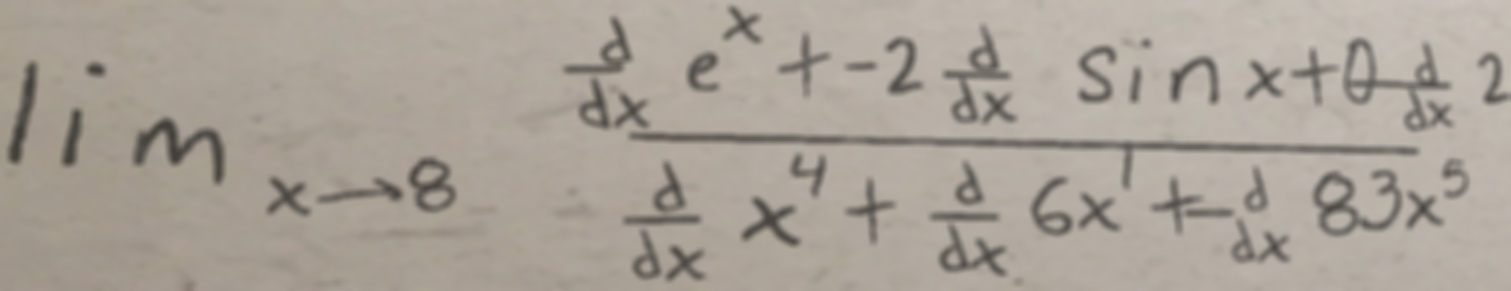 \lim_{x \to 8} \frac{\frac{d}{dx} e^{x} + -2 \frac{d}{dx} \sin x + 0 \frac{d}{dx} 2}{\frac{d}{dx} x^{4} + \frac{d}{dx} 6x^{1} + -\frac{d}{dx} 83x^{5}}